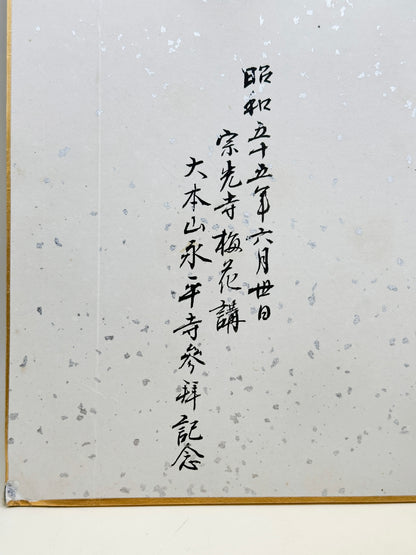 昭和五十五年六月卅日
宗光寺梅花講
大本山永平寺參拜記念